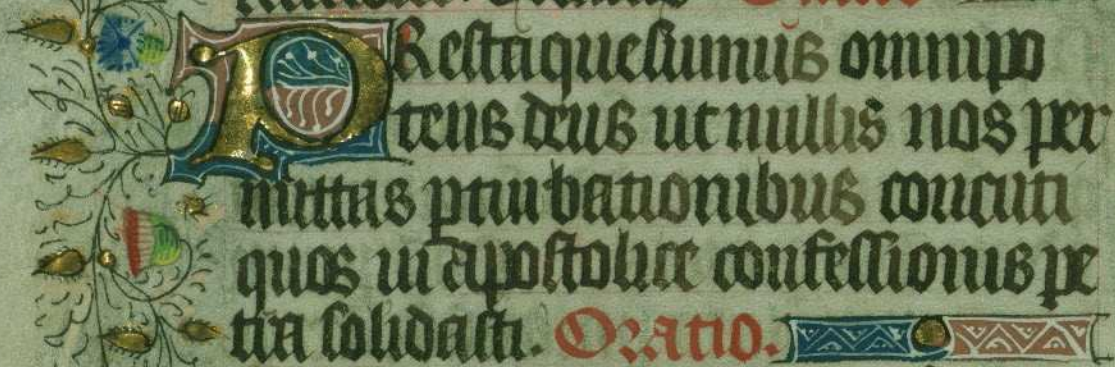 PResta quesumus omnipo
tens deus ut nullis nos per
mittas pturbationibus concuti
quos in apostolice confessionis pe
tra solidasti. Oratio.